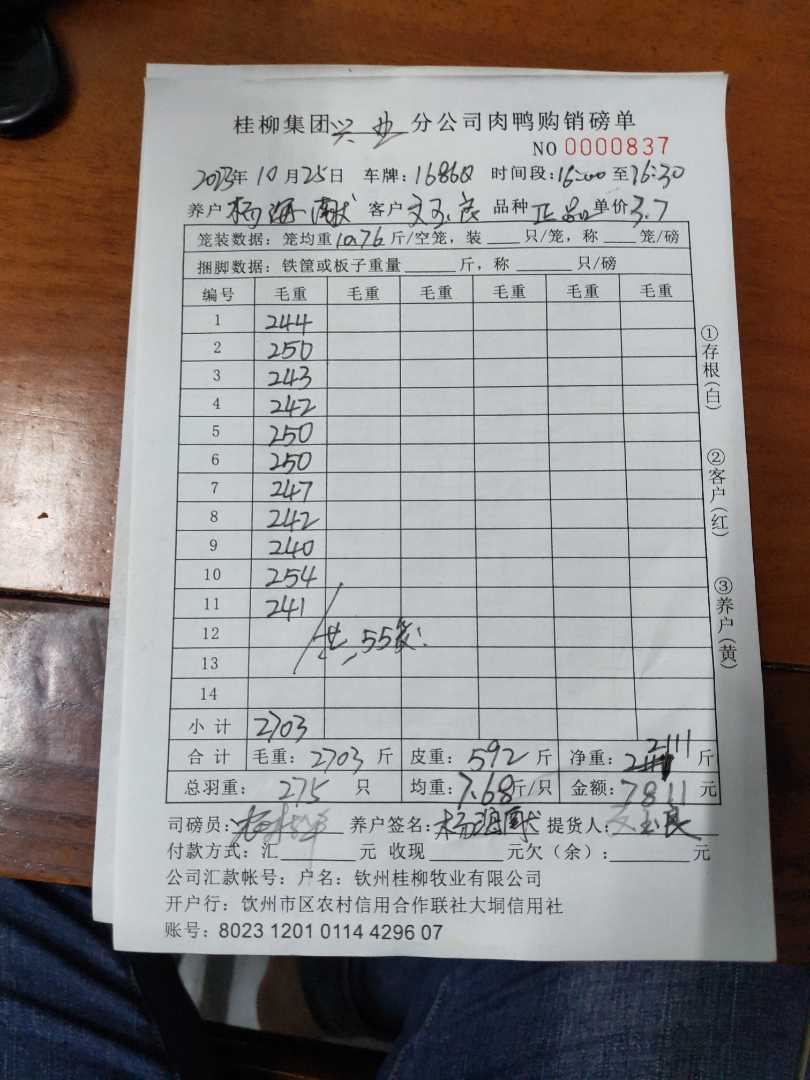 桂柳集团兴业分公司肉鸭购销磅单
NO 0000837
2023年10月25日 车牌:16860 时间段:16:00至16:30
养户杨海献 客户文玉良 品种正品单价3.7
笼装数据:笼均重10.76斤/空笼,装___只/笼,称___笼/磅
捆脚数据:铁筐或板子重量______斤,称______只/磅
编号 毛重 毛重 毛重 毛重 毛重 毛重
1 244
2 250
3 243
4 242
5 250
6 250
7 247
8 242
9 240
10 254
11 241
12 共55笼
13
14
小计 2703
合计 毛重:2703斤 皮重:592斤 净重:2111斤
总羽重:275只 均重:7.68斤/只 金额:7811元
司磅员: 养户签名:杨海献 提货人:文玉良
付款方式:汇______元 收现______元欠(余):______元
公司汇款帐号:户名:钦州桂柳牧业有限公司
开户行:饮州市区农村信用合作联社大垌信用社
账号:8023 1201 0114 4296 07
①存根(白)
②客户(红)
③养户(黄)